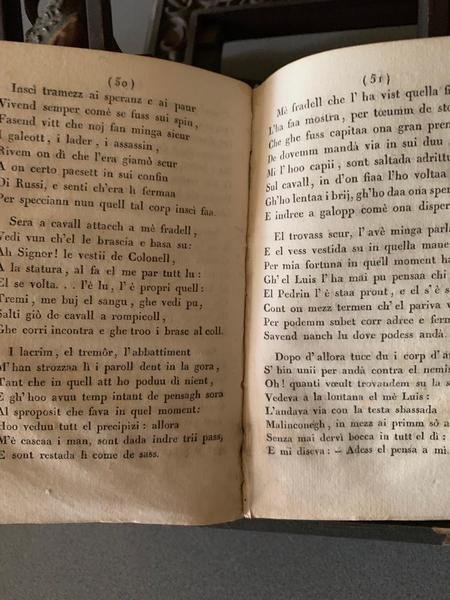 (50)
Inscì tramezz ai speranz e ai paur
Vivend semper comè se fuss sui spin,
Fasend vitt che noj fan minga sicur
I galeott, i lader, i assassin,
Rivem on dì che l'era giamò scur
A on certo paesett in sui confin
Di Russi, e sentì ch'era lì fermaa
Per speciann nun quell tal corp inscì faa.
Sera a cavall attacch a mè fradell,
Vedi vun ch'el le brascia e basa su:
Ah Signor! le vestii de Colonell,
A la statura, al fa el me par tutt lu:
El se volta... l'è lu, l'è propri quell:
Tremi, me buj el sangu, ghe vedi pu,
Salti giò de cavall a rompicoll,
Ghe corri incontra e ghe troo i brasc al coll.
I lacrim, el tremôr, l'abbattiment
M'han strozzaa lì i paroll dent in la gora,
Tant che in quell att ho poduu dì nient,
E gh'hoo avuu temp intant de pensagh sora
Al sproposit che fava in quel moment:
Hoo veduu tutt el precipizi: allora
M'è cascaa i man, sont dada indree trii pass,
E sont restada lì come de sass.
(51)
Mè fradell che l'ha vist quella
L'ha faa mostra, per tœumm de
Che ghe fuss capitaa ona gran
De dovemm mandà via in sui duu
Mi l'hoo capii, sont saltada
Sul cavall, in d'on fiaa l'ho voltaa
Gh'ho lentaa i brij, gh'ho daa ona
E indree a galopp comè ona
El trovass scur, l'avè minga
E el vess vestida su in quella
Per mia fortuna in quell moment
Gh'el Luis l'ha mai pu pensaa
El Pedrin l'è staa pront, e el s'è
Cont on mezz termen ch'el pariva
Per podemm subet corr adree e
Savend nanch lu dove podess
Dopo d'allora tuce du i corp
S'hin unii per andà contra el
Oh! quanti vœult trovandem su la
Vedeva a la lontana el mè Luis:
L'andava via con la testa sbassada
Malinconegh, in mezz ai primm sò
Senza mai dervì bocca in tutt el dì:
E mi diseva: — Adess el pensa a mì.